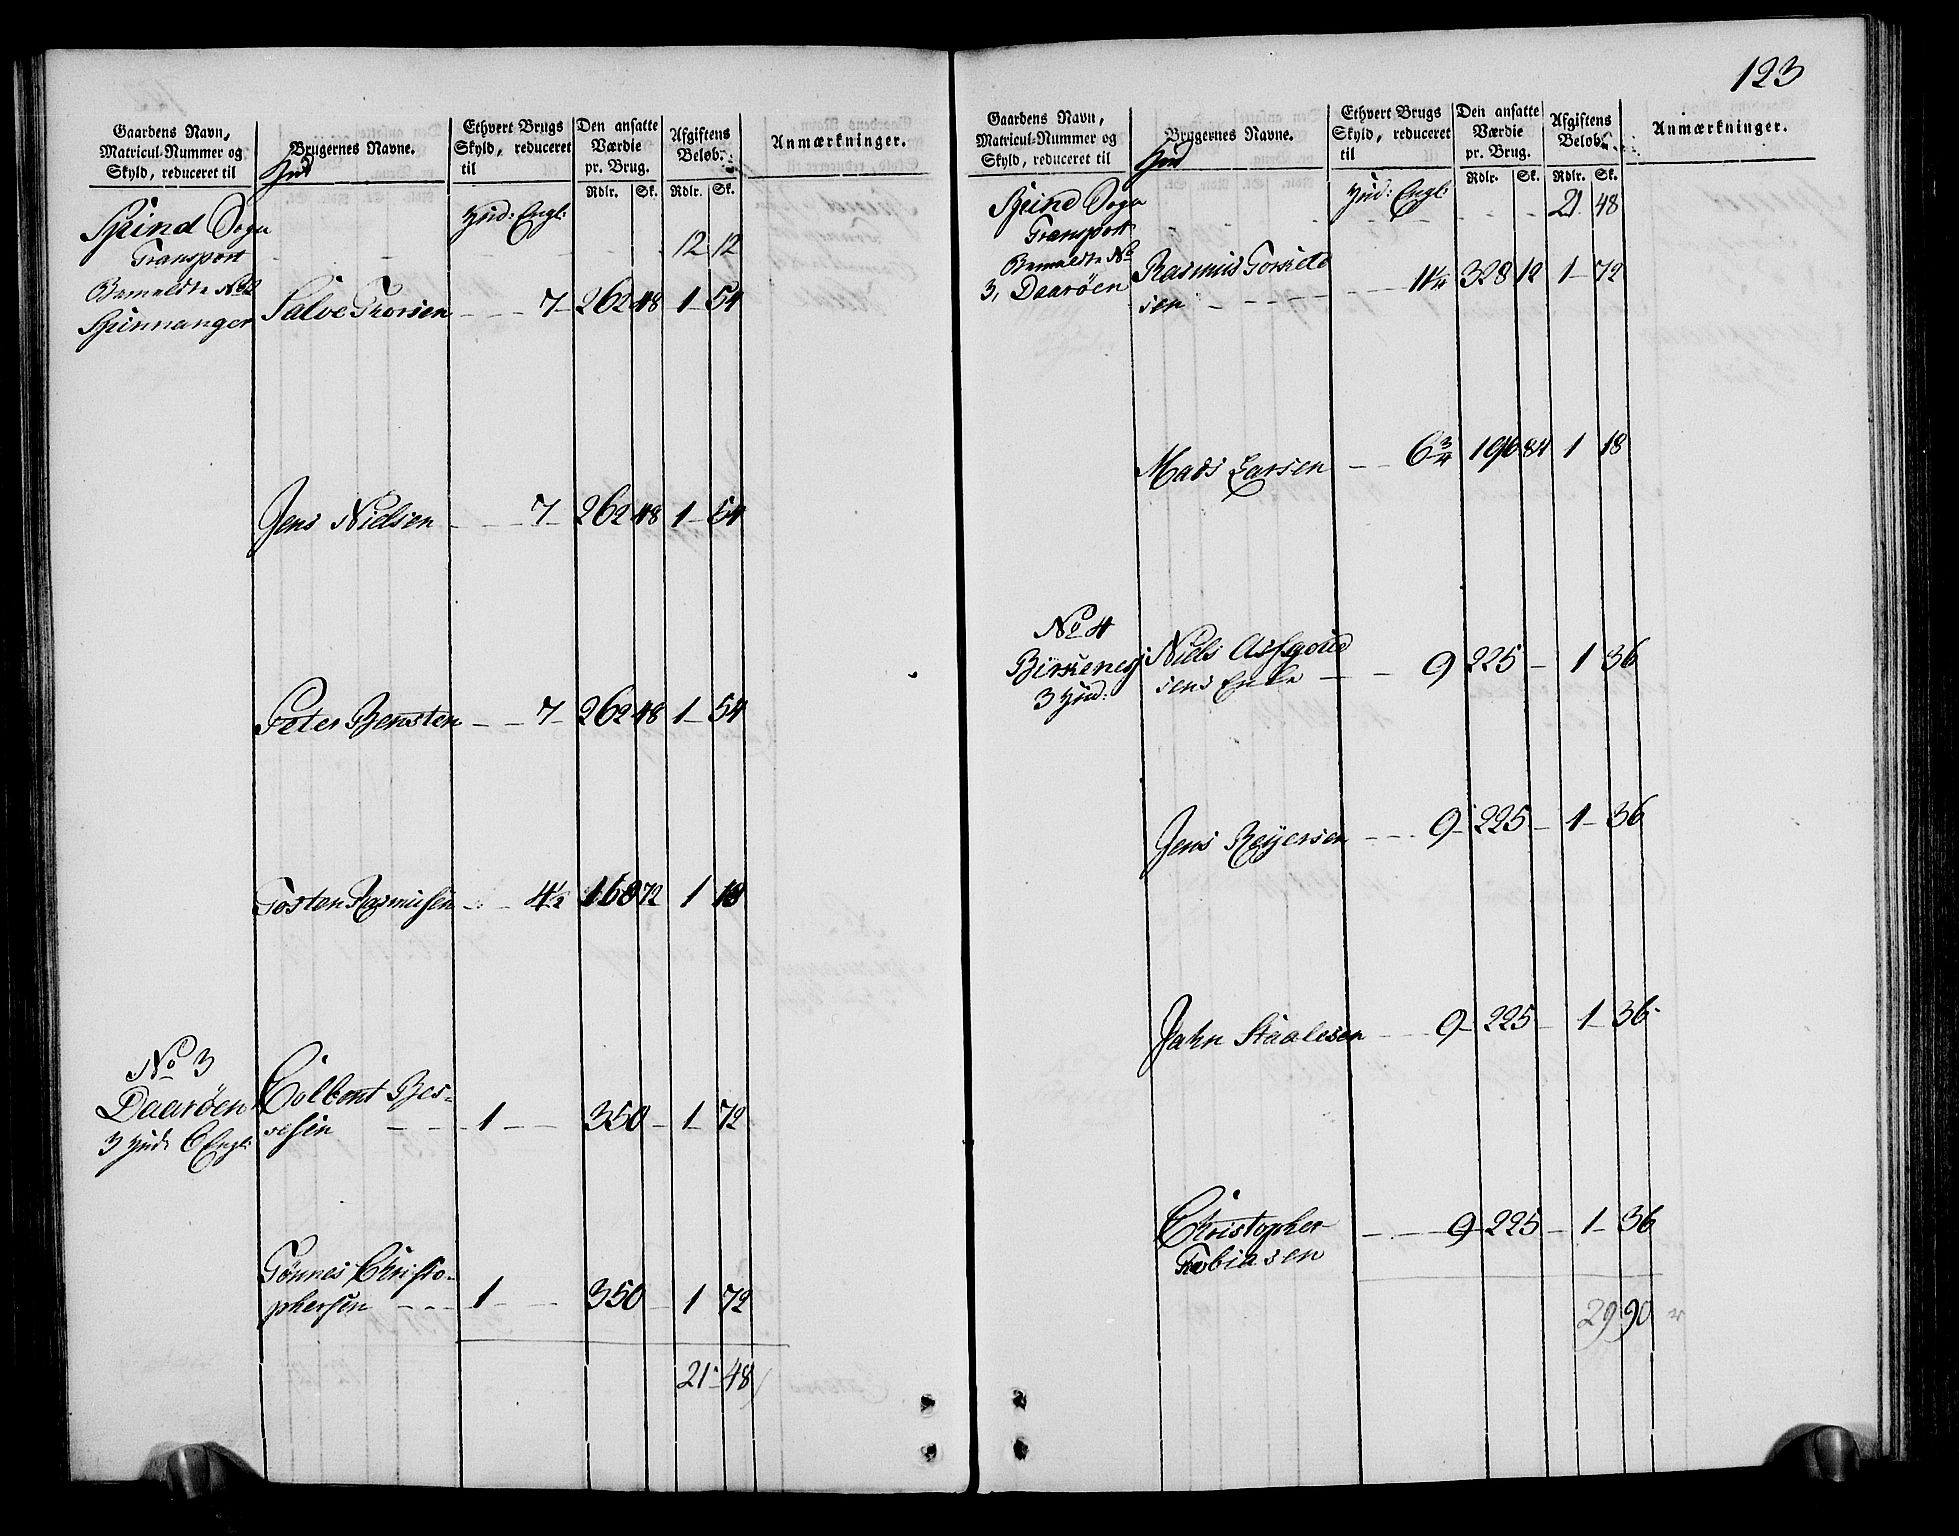 Gaardens Navn,
Matricul-Nummer og
Skyld, reduceret til
Brugernes Navne.
Ethvert Brugs
Skyld, reduceret
til
Den ansatte
Værdie
pr. Brug.
Rdlr. Sk.
Afgiftens
Beløb.
Rdlr. Sk.
Anmærkninger.
Hud
Spind Sogn
Transport
Hud: Engl:
12 12
Bemeldte No 2
Spinnanger
Salve Torsen 7 262 48 1 54
Jens Nielsen 7 262 48 1 54
Peter Bensten 7 262 48 1 54
Tosten Rasmusen 4½ 168 72 1 18
No 3
Daarøen
3 Hud: 6 Engl:
Colbent Ber-
resen 1 350 1 72
Tønnes Christo-
phersen 1 350 1 72
21 48
123
Gaardens Navn,
Matricul-Nummer og
Skyld, reduceret til
Brugernes Navne.
Ethvert Brugs
Skyld, reduceret
til
Den ansatte
Værdie
pr. Brug.
Rdlr. Sk.
Afgiftens
Beløb.
Rdlr. Sk.
Anmærkninger.
Hud
Spind Sogn
Transport
Hud: Engl:
21 48
Bemeldte No
3, Daarøen
Rasmus
sen 11¼ 328 12 1 72
Mads Larsen 6¾ 196 84 1 18
No 4
3 Hud:
Niels
sens Enke 9 225 1 36
Jens Reyersen 9 225 1 36
Jahn Staalesen 9 225 1 36
Christopher 9 225 1 36
Tobiasen
29 90